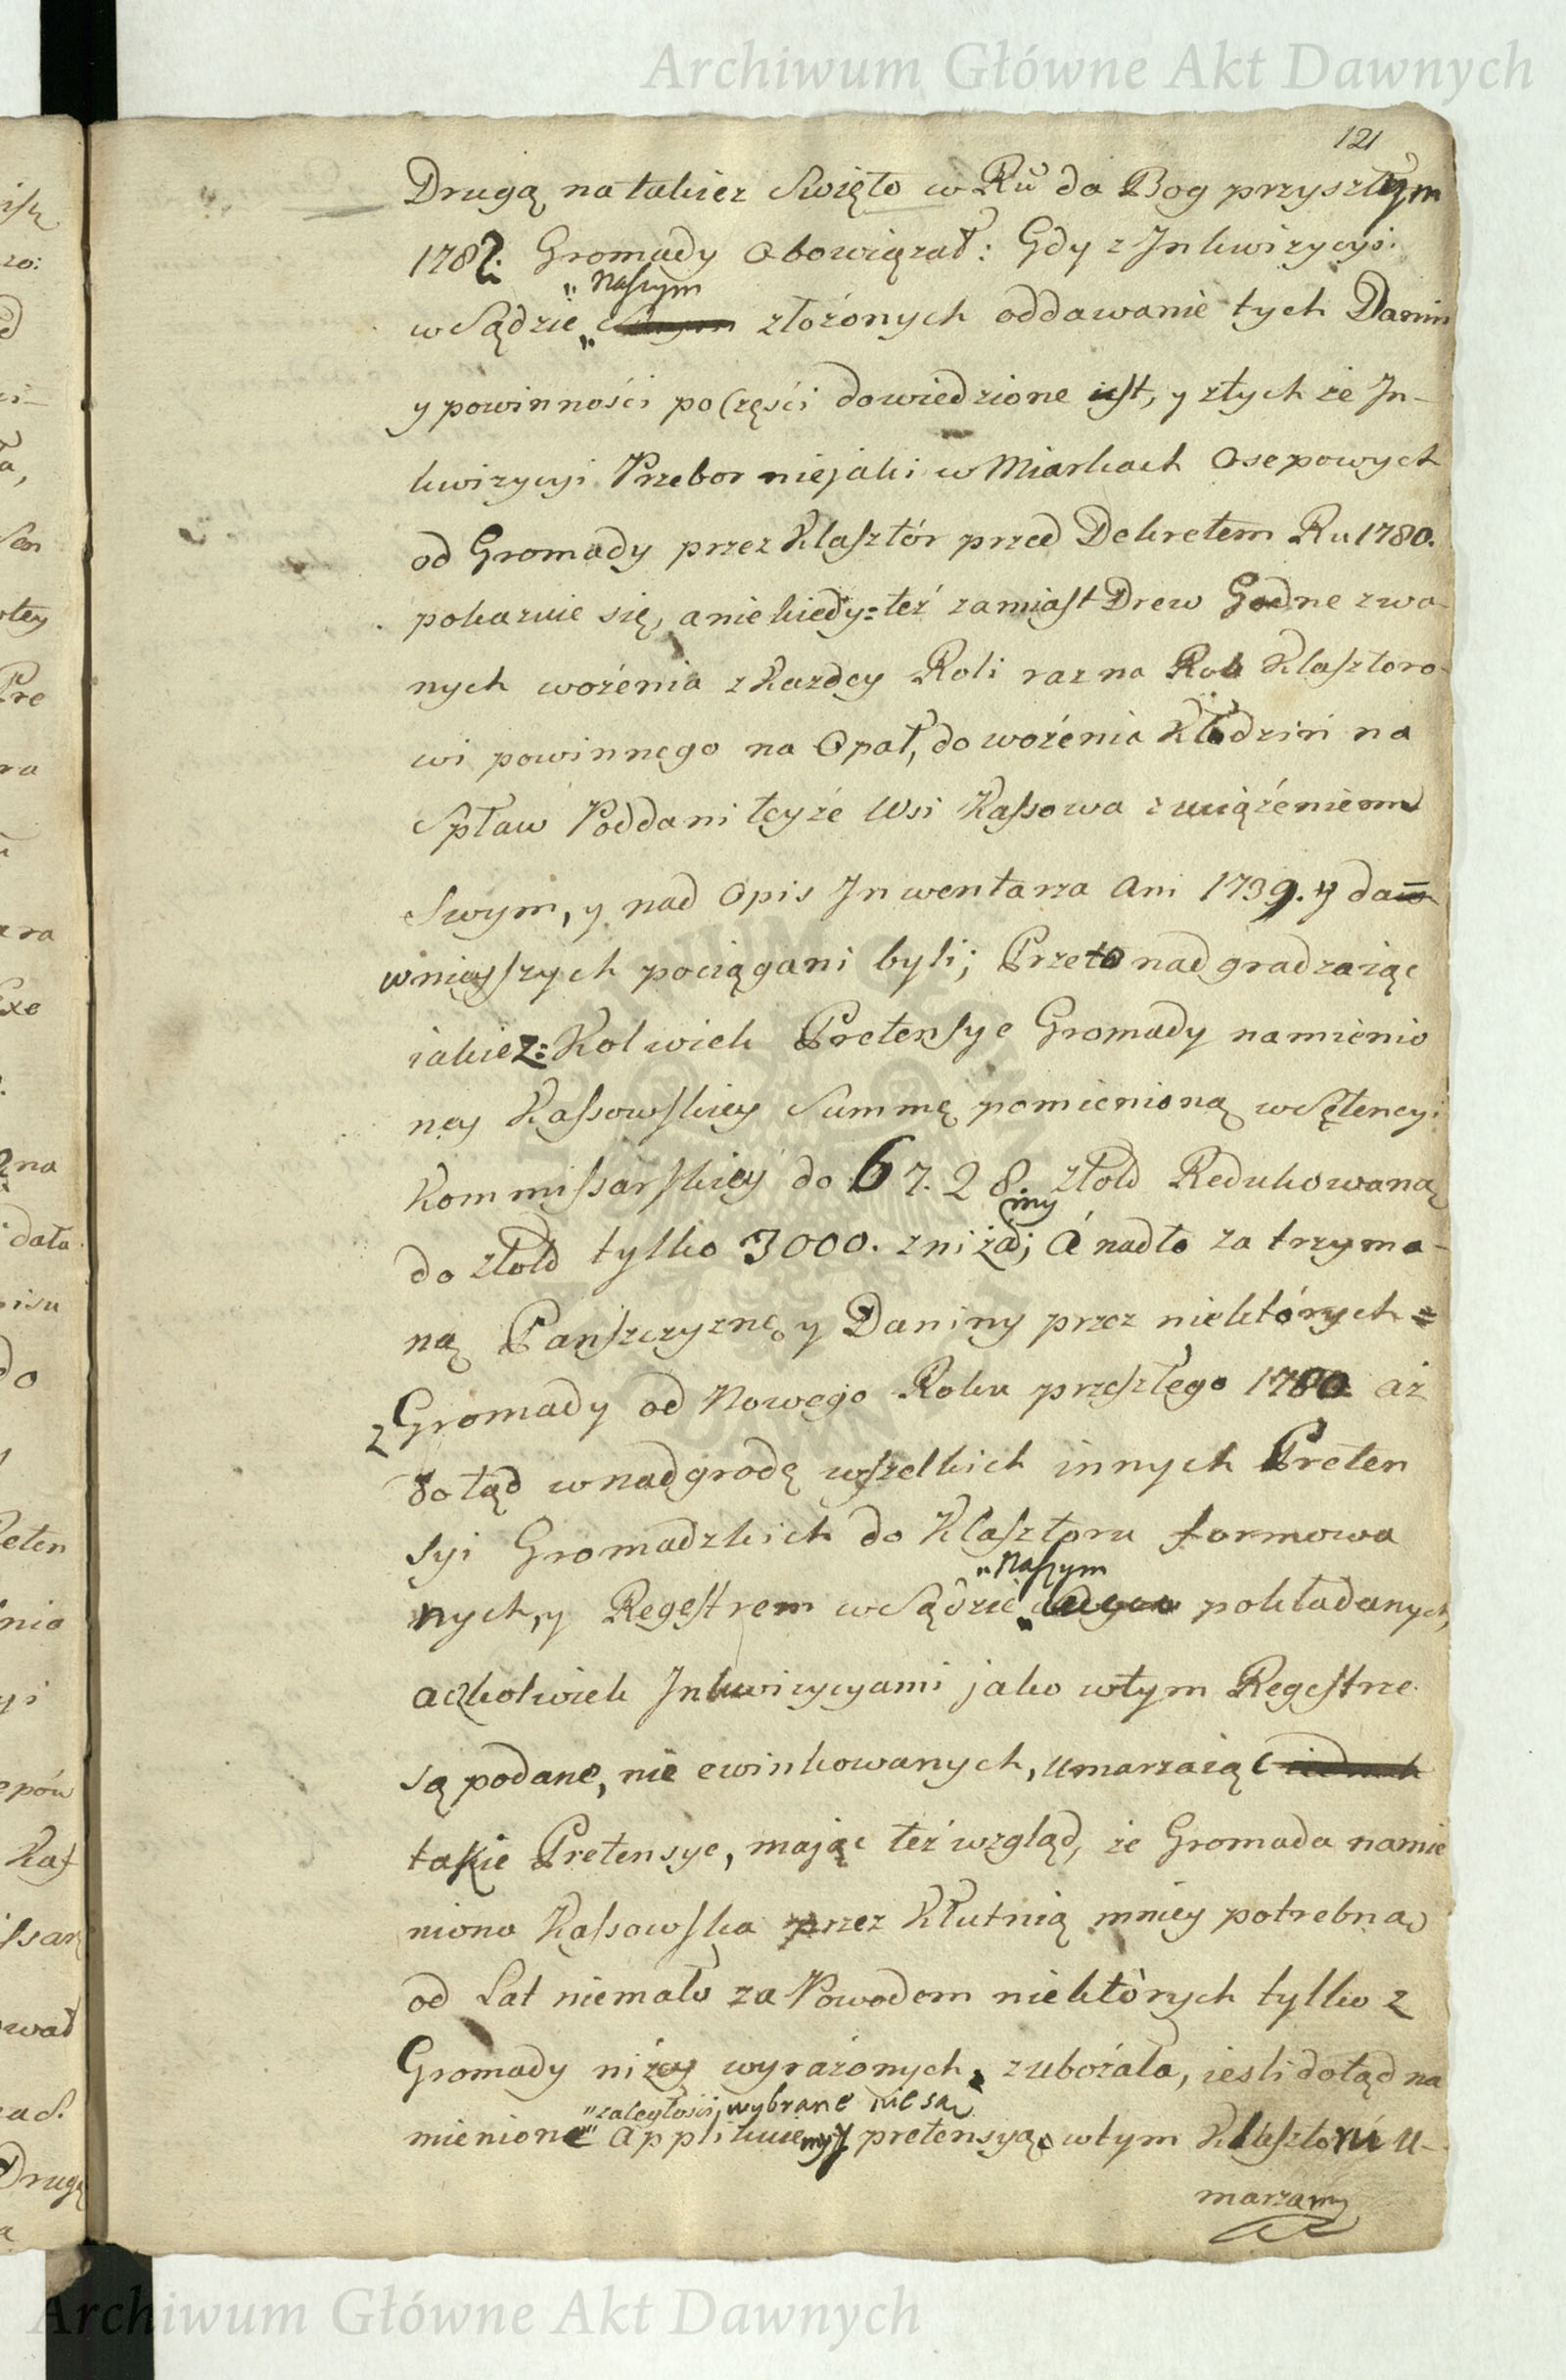 Archiwum Główne Akt Dawnych
121
Drugą na takież Swięto w Ru da Bog przyszłym
178 Gromady obowiązał: Gdy z Inkwizycyi
w Sądzie „Naszym" złożonych oddawanie tych Danin
y powinności poczęści dowiedzione iest, y z tych że In-
kwizycyi Przebor niejaki w Miarkach Osepowych
od Gromady przez Klasztór przed Dekretem Ru 1780.
pokazuie się, a niekiedy też zamiast Drew Godne zwa-
nych wożenia z każdey Roli raz na Rok Klasztoro-
wi powinnego na Opał, do wożenia Kłodzin na
Spław Poddani teyże Wsi Kassowa z uciążeniem
Swym, y nad Opis Inwentarza Ani 1739. y da-
wnieyszych pociągani byli; Przeto nadgradzaiąc
iakież=Kolwiek Pretensye Gromady namienio
ney Kassowskiey Summę pomienioną w Sętencyi
Kommissarskiey do 67.28. złold Redukowaną
do złold tylko 3000. zniżamy; á nadto zatrzyma-
ną Panszczyznę y Daniny przez niektórych=
z Gromady od Nowego Roku przeszłego 1780 aż
dotąd w nadgrodę wszelkich innych Preten
syi Gromadzkich do Klasztoru formowa
nych, y Regestrem w Sądzie „Naszym" pokładanych,
aczkolwiek Inkwizycyami jako w tym Regestrze
są podane, nie ewinkowanych, umarzaiąc
takie Pretensye, mając też wzgląd, że Gromada namie
niona Kassowska przez Kłutnią mniey potrebną
od Lat niemało za Powodem niektórych tylko z
Gromady niżey wyrażonych, zubożała, iesli dotąd na
mienione „zaległości, wybrane nie są" Applikuiemy pretensyą w tym Klasztoru u-
marzamy
Archiwum Główne Akt Dawnych